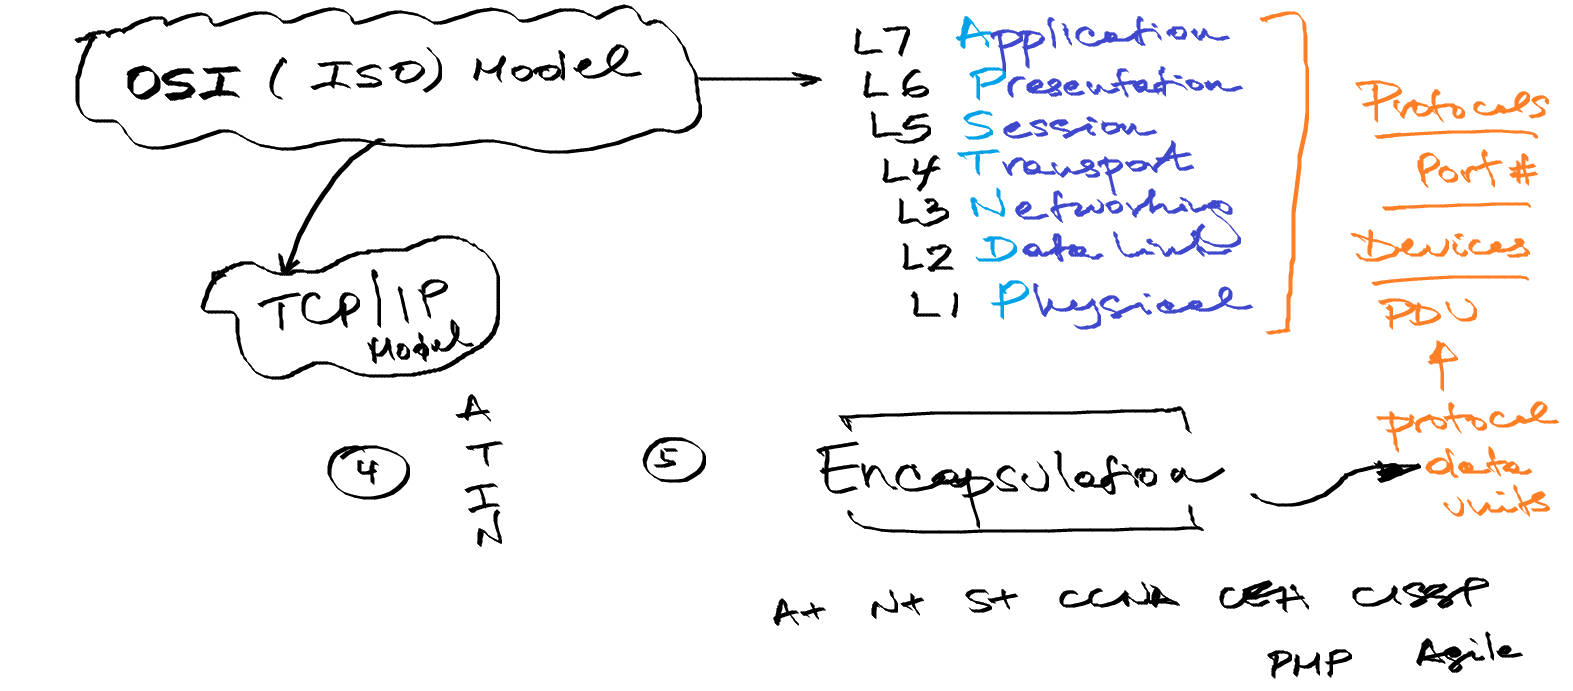 OSI (ISO) Model
L7 Application
L6 Presentation
L5 Session
L4 Transport
L3 Networking
L2 Data Link
L1 Physical
Protocols
Port #
Devices
PDU
protocol
data
units
TCP/IP
Model
A
T
I
N
4
5
Encapsulation
A+ N+ S+ CCNA CEH CISSP
PMP Agile